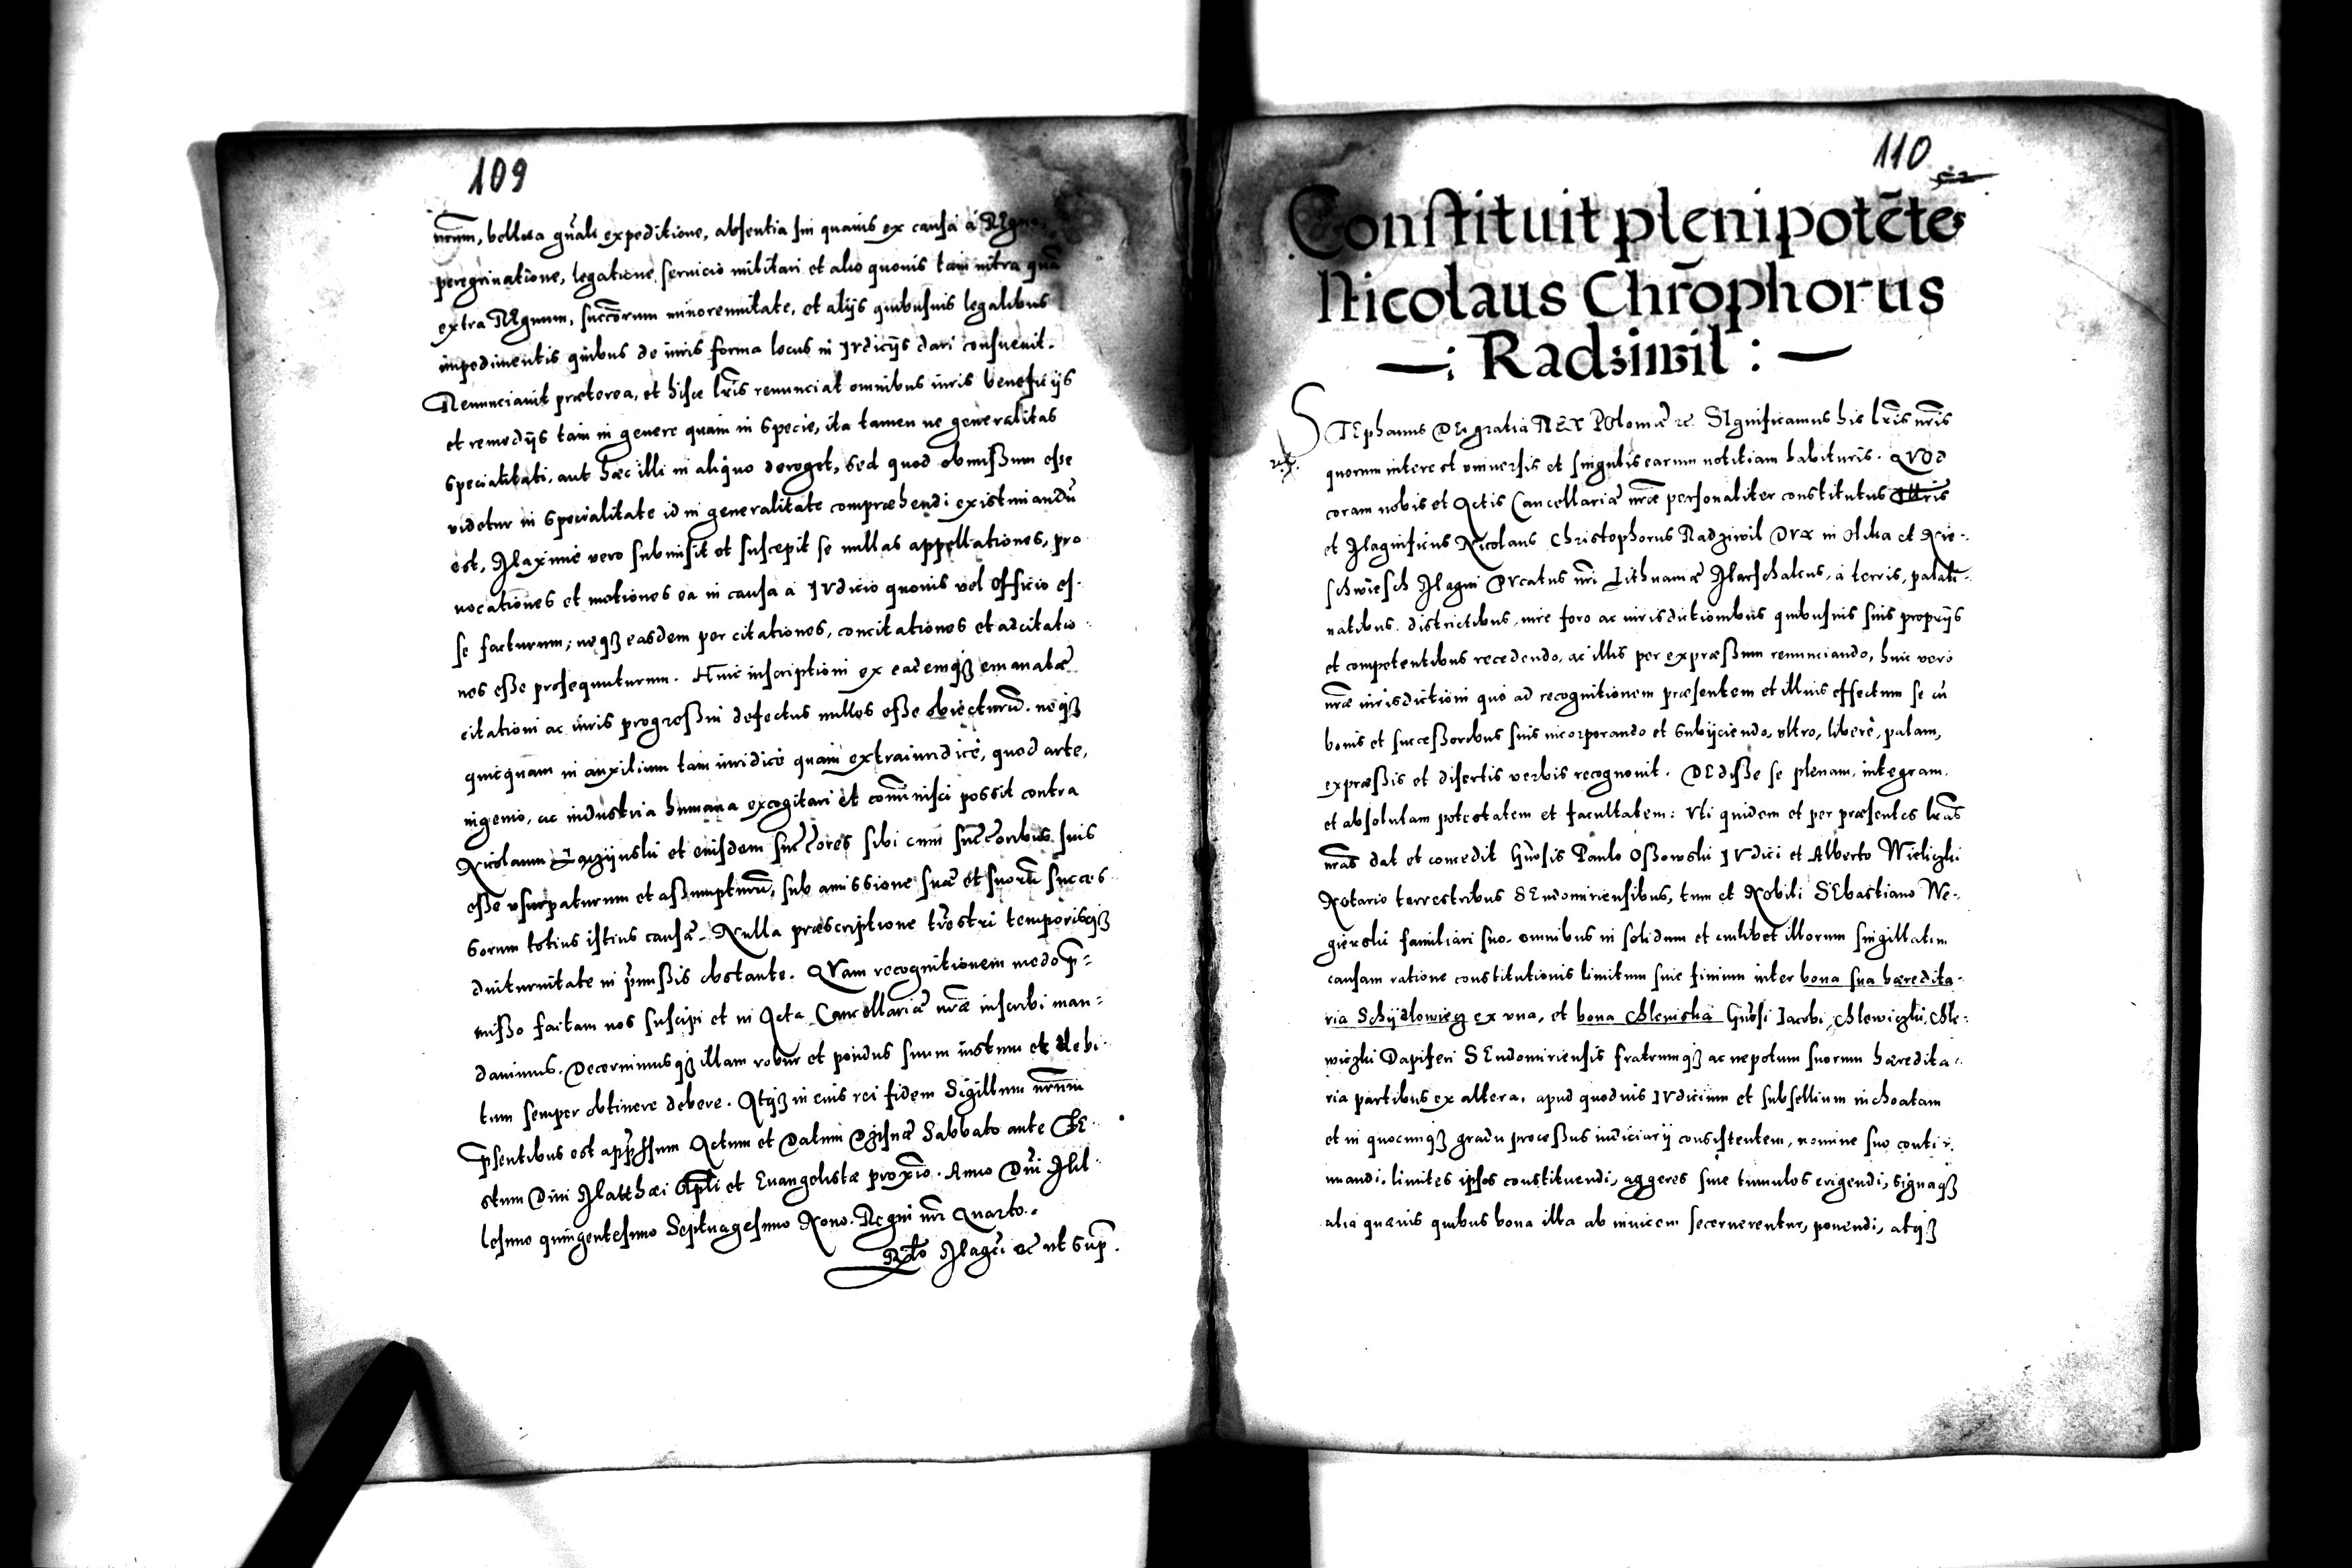 109
nrum, bellica gnali expeditione, absentia siu quauis ex causa a REgno,
peregrinatione, legatione seruicio militari et alio quouis tam intra quā
extra REgnum, succorum minorennitate, et alijs quibusuis legalibus
impedimentis quibus de iuris forma locus in IVdicijs dari consueuit.
Renunciauit præterea, et hisce lris renunciat omnibus iuris beneficijs
et remedijs tam in genere quam in specie, ita tamen ne generalitas
specialitati, aut hæc illi in aliquo deroget, sed quod obmißum esse
videtur in specialitate id in generalitate compræhendi existimandū
est, Maxime vero submisit et suscepit se nullas appellationes, pro
uocationes et motiones ea in causa a IVdicio quouis vel officio es
se facturum; neqꝫ easdem per citationes, concitationes et adcitatio
nes eße prosequuturum. Huic inscriptioni ex eademqꝫ emanatæ
citationi ac iuris progreßui defectus nullos eße obiecturū. neqꝫ
quicquam in auxilium tam iuridicè quam extraiuridicè, quod arte,
ingenio, ac industria humana excogitari et cōminisci possit contra
Nicolaum et eiusdem succores sibi cum succoribus suis
eße vsurpaturum et aßumpturū, sub amissione suæ et suorū succes
sorum totius istius causæ. Nulla præscriptione trrestri temporisqꝫ
diuturnitate in pmißis obstante. QVam recognitionem modo p=
mißo factam nos suscipi et in Acta Cancellariæ nræ inscribi man=
dauimus. Decernimusqꝫ illam robur et pondus suum iustum et debi
tum semper obtinere debere. Atqꝫ in cuius rei fidem Sigillum nrum
psentibus est appssum Actum et Datum Sabbato ante FE
stum Diui Matthæi Apli et Euangelistæ proxio. Anno Dni Mil
lesimo quingentesimo Septuagesimo Nono. Regni nri Quarto.
Rlto Magci &c ut sup.
110
52
Constituit plenipotēte
Nicolaus Chrōphorus
—: Radziwil : —
STEphanus DEi gratia REX POloniæ &c. SIgnificamus his lris nris
quorum interest vniuersis et singulis earum notitiam habituris. QVOd
coram nobis et Actis Cancellariæ nræ personaliter constitutus
et Magnificus Nicolaus Christophorus Radziwil DVx in Olika et Nie=
schwiesch Magni DVcatus nri Lithuaniæ Marschalcus, a terris, palati=
natibus. districtibus, iure foro ac iurisdictionibus quibusuis suis proprijs
et competentibus recedendo, ac illis per expræßum renunciando, huic vero
nræ iurisdictioni quo ad recognitionem præsentem et illius effectum se cū
bonis et succeßoribus suis incorporando et subijciendo, vltro, liberè, palam,
expræßis et disertis verbis recognouit. DEdiße se plenam, integram,
et absolutam potestatem et facultatem: Vti quidem et per præsentes lras
nras dat et concedit Gnosis Paulo Oßowski IVdici et Alberto Wieliczki
Notario terrestribus SEndomiriensibus, tum et Nobili SEbastiano We=
gierski familiari suo. omnibus in solidum et cuilibet illorum singillatim
causam ratione constitutionis limitum siue finium inter bona sua hæredita=
ria Schÿdlowiecz ex vna, et bona Chleviska Gnosi Iacobi Chlewiczki, Chle=
wiczki Dapiferi SEndomiriensis fratrumqꝫ ac nepotum suorum hæredita=
ria partibus ex altera, apud quoduis IVdicium et subsellium inchoatam
et in quocunqꝫ gradu proceßus iudiciarij consistentem, nomine suo conti=
nuandi. limites ipsos constituendi, aggeres siue tumulos erigendi, signaqꝫ
alia quæuis quibus bona illa ab inuicem secernerentur, ponendi, atqꝫ